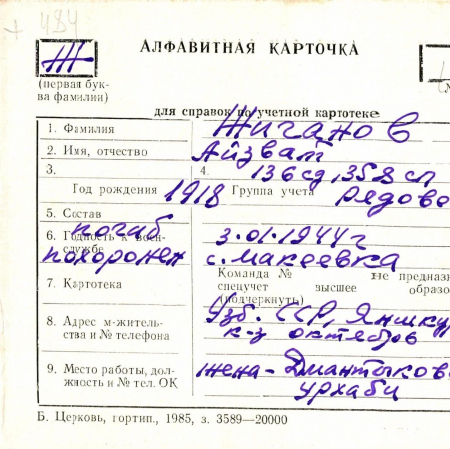 484
Ж
АЛФАВИТНАЯ КАРТОЧКА
(первая бук-
ва фамилии)
для справок по учетной картотеке
1. Фамилия Жиганов
2. Имя, отчество Айзват
3. 4. 136 сд, 358 сп
Год рождения 1918 Группа учета рядово
5. Состав
погиб
6. Годность к воен- 3.01.1944 г
службе
похоронен с. Макеевка
7. Картотека Команда № не предназн
спецучет высшее образо
(подчеркнуть)
8. Адрес м-житель- Узб. ССР, Янгикур
ства и № телефона к-з октябров
9. Место работы, дол- жена - Дмантыкова
жность и № тел. ОК урхаби
Б. Церковь, гортип., 1985, з. 3589—20000